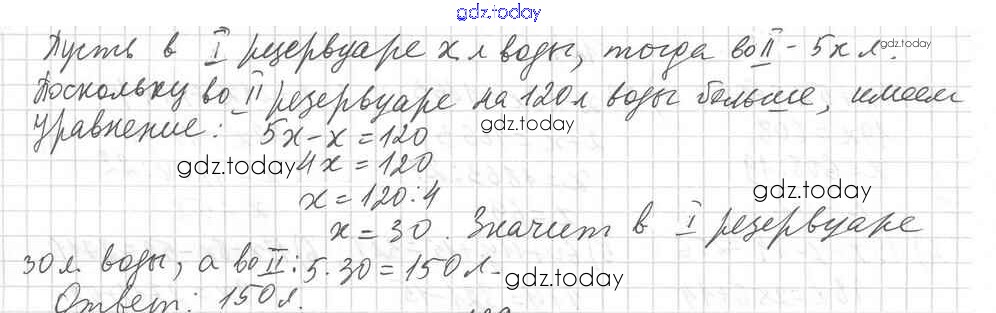 gdz.today
Пусть в I резервуаре x л воды, тогда во II - 5x л. gdz.today
Поскольку во II резервуаре на 120 л воды больше, имеем
уравнение: 5x - x = 120 gdz.today
gdz.today 4x = 120
x = 120 : 4 gdz.today
x = 30. Значит в I резервуаре
30 л. воды, а во II: 5 · 30 = 150 л. gdz.today
Ответ: 150 л.